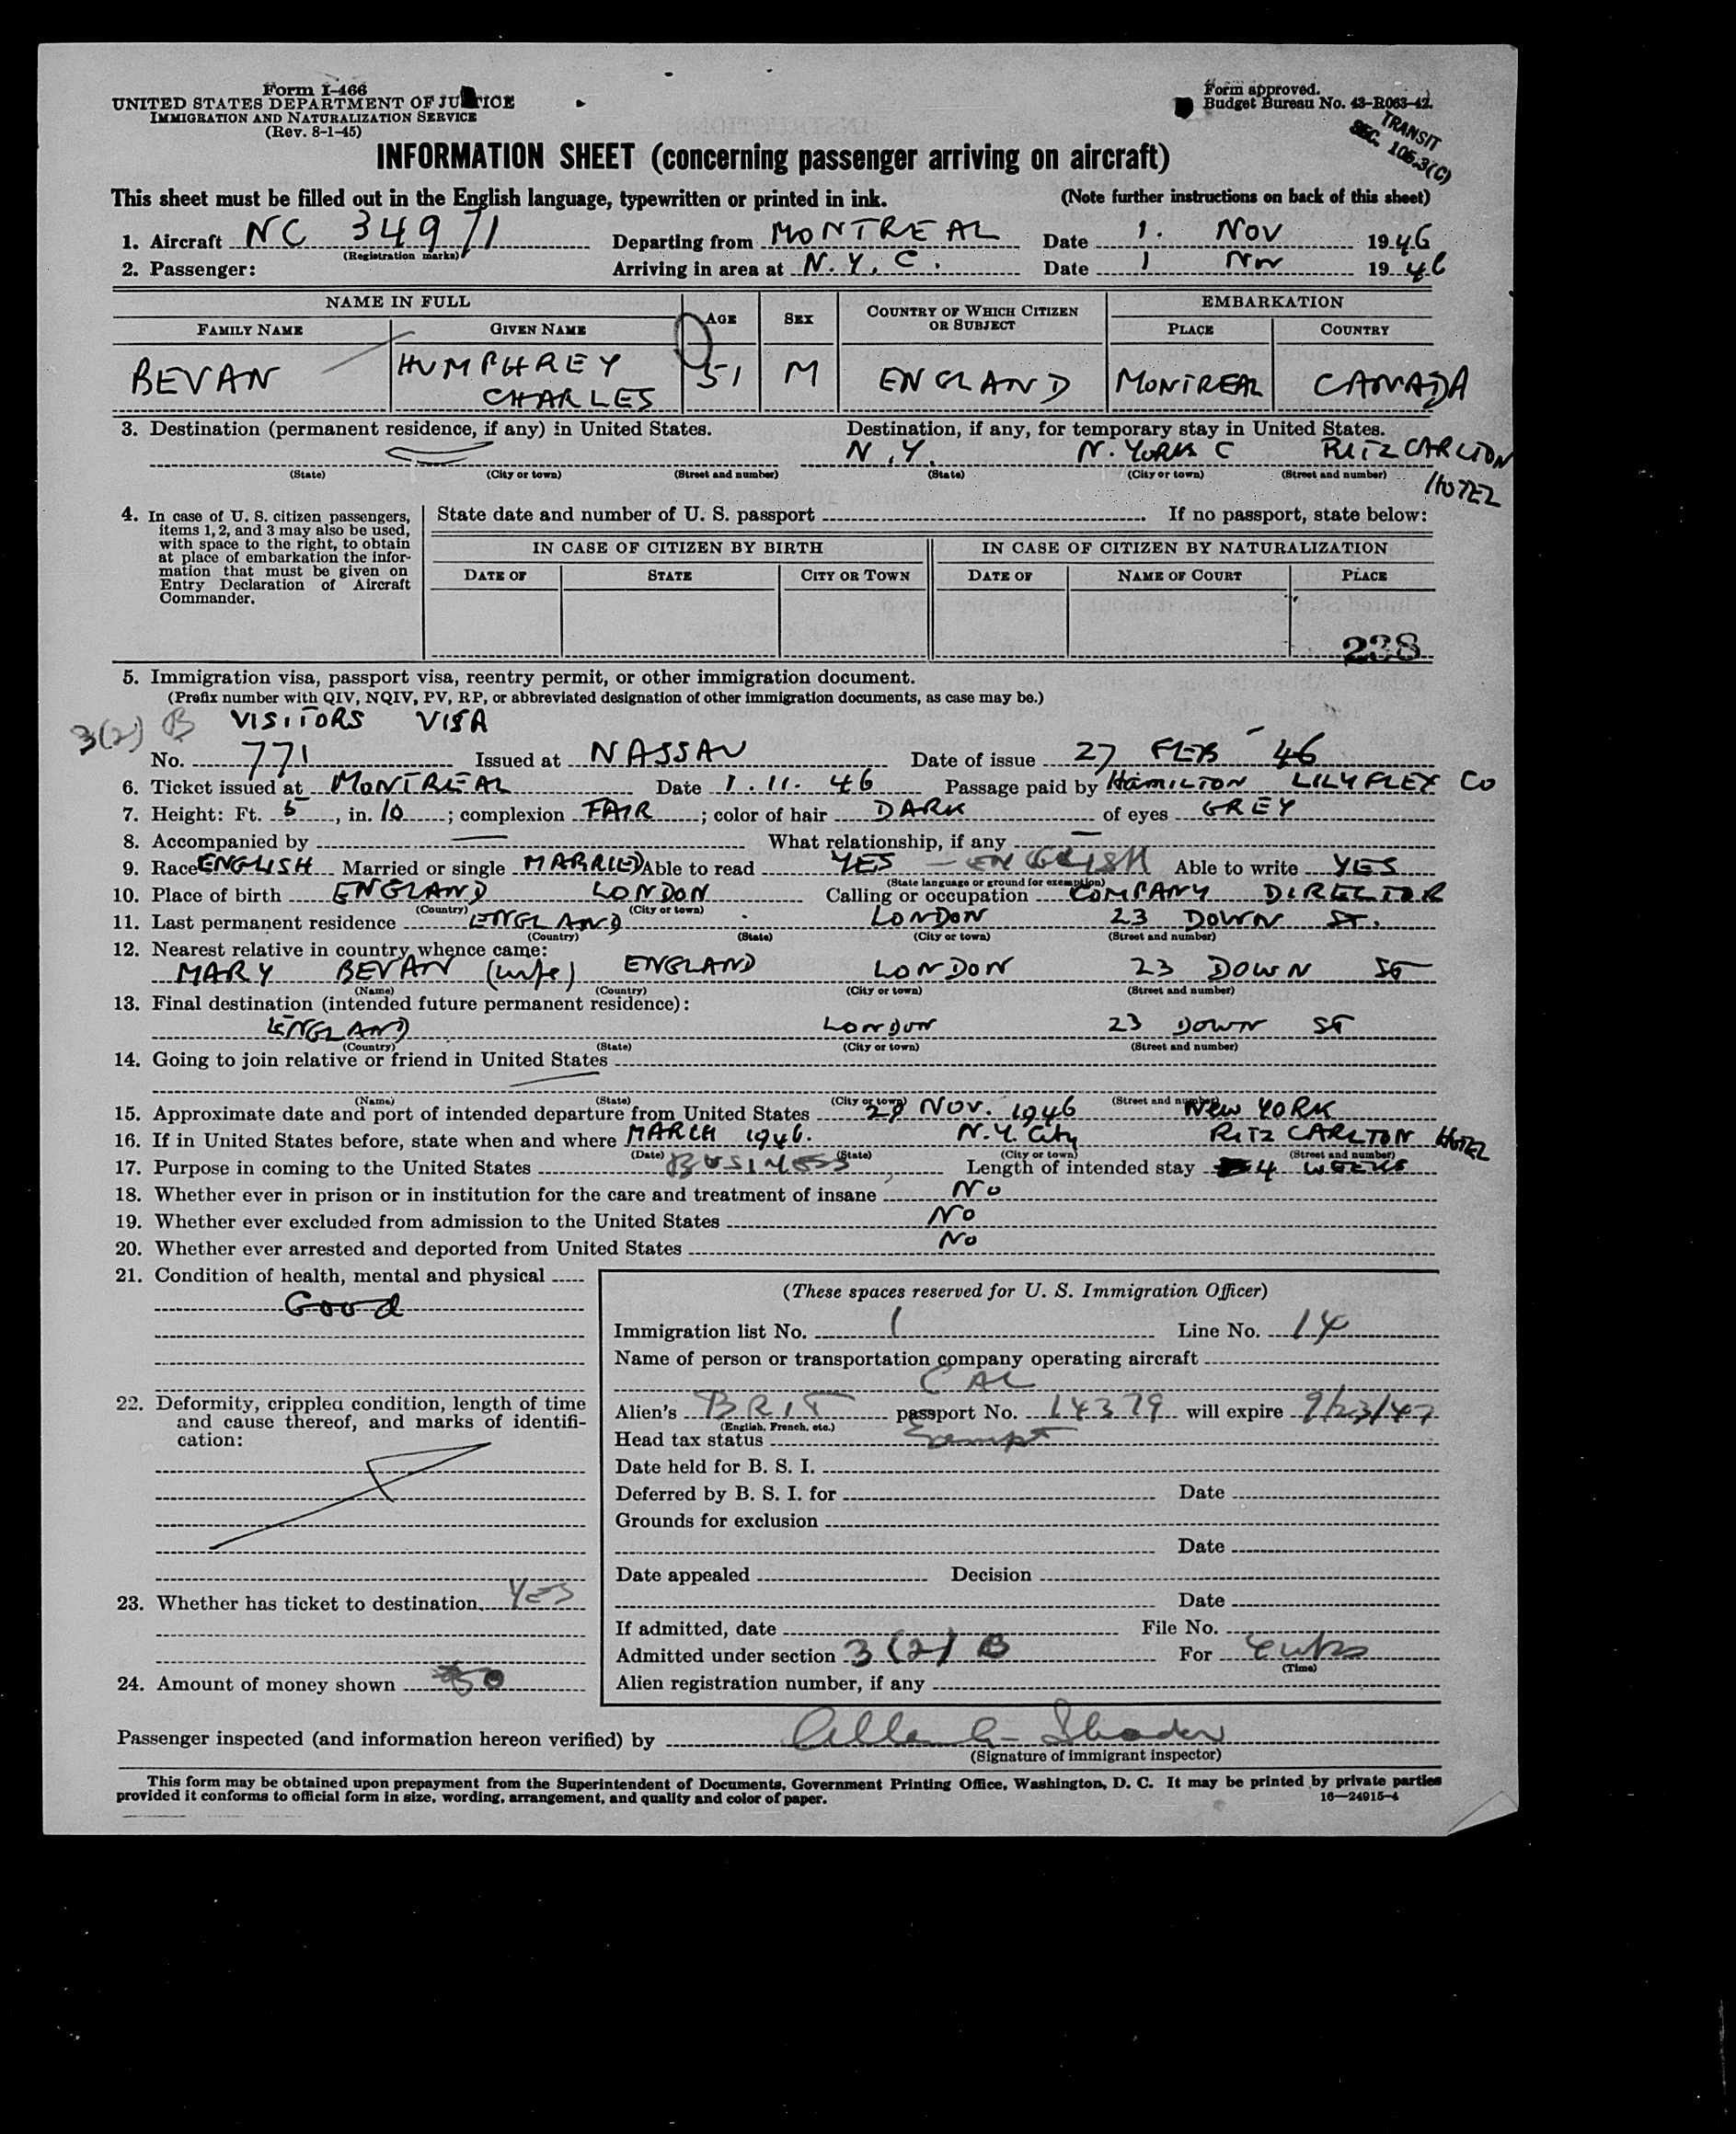 Form I-466
UNITED STATES DEPARTMENT OF JUSTICE
IMMIGRATION AND NATURALIZATION SERVICE
(Rev. 8-1-45)
Form approved.
Budget Bureau No. 43-R063-42.
TRANSIT
SEC. 105.3(C)
INFORMATION SHEET (concerning passenger arriving on aircraft)
This sheet must be filled out in the English language, typewritten or printed in ink. (Note further instructions on back of this sheet)
1. Aircraft NC 34971 Departing from MONTREAL Date 1. Nov 1946
(Registration marks)
2. Passenger: Arriving in area at N.Y.C. Date 1 Nov 1946
NAME IN FULL AGE SEX COUNTRY OF WHICH CITIZEN OR SUBJECT EMBARKATION
FAMILY NAME GIVEN NAME PLACE COUNTRY
BEVAN HUMPHREY CHARLES 51 M ENGLAND MONTREAL CANADA
3. Destination (permanent residence, if any) in United States. Destination, if any, for temporary stay in United States.
N.Y. N. YORK C RITZ CARLTON HOTEL
(State) (City or town) (Street and number) (State) (City or town) (Street and number)
4. In case of U. S. citizen passengers, items 1, 2, and 3 may also be used, with space to the right, to obtain at place of embarkation the information that must be given on Entry Declaration of Aircraft Commander.
State date and number of U. S. passport If no passport, state below:
IN CASE OF CITIZEN BY BIRTH IN CASE OF CITIZEN BY NATURALIZATION
DATE OF STATE CITY OR TOWN DATE OF NAME OF COURT PLACE
238
5. Immigration visa, passport visa, reentry permit, or other immigration document.
(Prefix number with QIV, NQIV, PV, RP, or abbreviated designation of other immigration documents, as case may be.)
3(2) B VISITORS VISA
No. 771 Issued at NASSAU Date of issue 27 FEB 46
6. Ticket issued at MONTREAL Date 1.11.46 Passage paid by HAMILTON LILYFLEX CO
7. Height: Ft. 5, in. 10; complexion FAIR; color of hair DARK of eyes GREY
8. Accompanied by What relationship, if any
9. Race ENGLISH Married or single MARRIED Able to read YES - ENGLISH Able to write YES
(State language or ground for exemption)
10. Place of birth ENGLAND LONDON Calling or occupation COMPANY DIRECTOR
(Country) (City or town)
11. Last permanent residence ENGLAND LONDON 23 DOWN ST.
(Country) (State) (City or town) (Street and number)
12. Nearest relative in country whence came:
MARY BEVAN (wife) ENGLAND LONDON 23 DOWN ST
(Name) (Country) (City or town) (Street and number)
13. Final destination (intended future permanent residence):
ENGLAND LONDON 23 DOWN ST
(Country) (State) (City or town) (Street and number)
14. Going to join relative or friend in United States
(Name) (State) (City or town) (Street and number)
15. Approximate date and port of intended departure from United States NOV. 1946 NEW YORK
16. If in United States before, state when and where MARCH 1946. N.Y. City RITZ CARLTON HOTEL
(Date) (State) (City or town) (Street and number)
17. Purpose in coming to the United States BUSINESS Length of intended stay 4 WEEKS
18. Whether ever in prison or in institution for the care and treatment of insane No
19. Whether ever excluded from admission to the United States No
20. Whether ever arrested and deported from United States No
21. Condition of health, mental and physical
Good
22. Deformity, crippled condition, length of time and cause thereof, and marks of identification:
23. Whether has ticket to destination YES
24. Amount of money shown 50
(These spaces reserved for U. S. Immigration Officer)
Immigration list No. 1 Line No. 14
Name of person or transportation company operating aircraft
CAL
Alien's BRIT passport No. 14379 will expire 9/23/47
(English, French, etc.)
Head tax status Exempt
Date held for B. S. I.
Deferred by B. S. I. for Date
Grounds for exclusion
Date
Date appealed Decision
Date
If admitted, date File No.
Admitted under section 3(2) B For 4 wks
(Time)
Alien registration number, if any
Passenger inspected (and information hereon verified) by
(Signature of immigrant inspector)
This form may be obtained upon prepayment from the Superintendent of Documents, Government Printing Office, Washington, D. C. It may be printed by private parties
provided it conforms to official form in size, wording, arrangement, and quality and color of paper. 16—24915-4